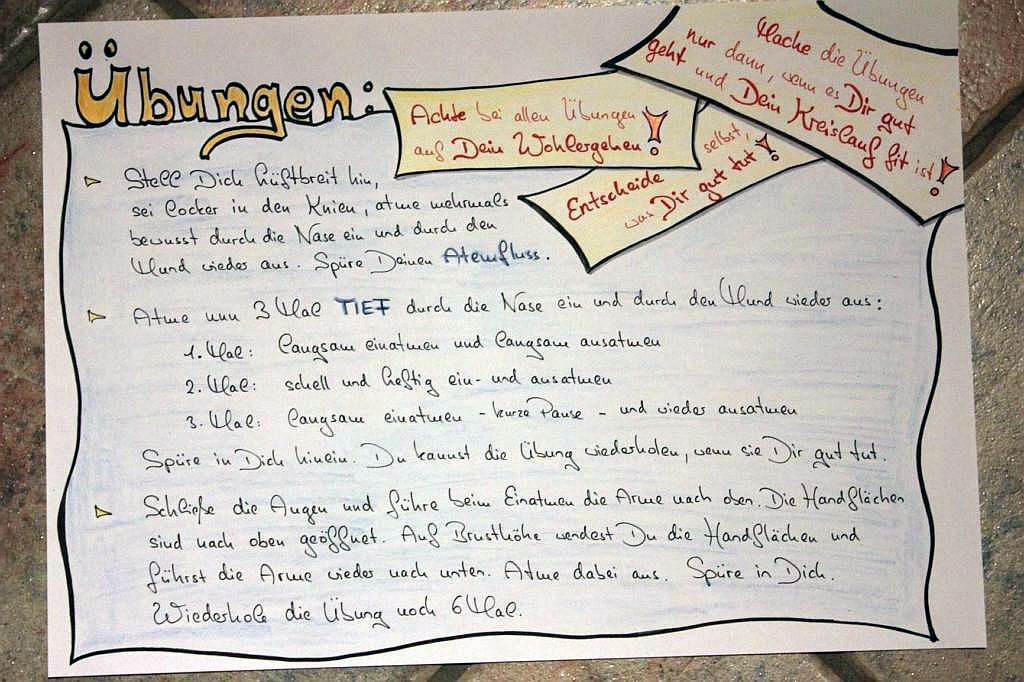 Übungen:
Achte bei allen Übungen
auf Dein Wohlergehen!
Mache die Übungen
nur dann, wenn es Dir gut
geht und Dein Kreislauf fit ist!
Entscheide selbst,
was Dir gut tut!
Stell Dich hüftbreit hin,
sei locker in den Knien, atme mehrmals
bewusst durch die Nase ein und durch den
Mund wieder aus. Spüre Deinen Atemfluss.
Atme nun 3 Mal TIEF durch die Nase ein und durch den Mund wieder aus:
1. Mal: langsam einatmen und langsam ausatmen
2. Mal: schell und heftig ein- und ausatmen
3. Mal: langsam einatmen - kurze Pause - und wieder ausatmen
Spüre in Dich hinein. Du kannst die Übung wiederholen, wenn sie Dir gut tut.
Schließe die Augen und führe beim Einatmen die Arme nach oben. Die Handflächen
sind nach oben geöffnet. Auf Brusthöhe wendest Du die Handflächen und
führst die Arme wieder nach unten. Atme dabei aus. Spüre in Dich.
Wiederhole die Übung noch 6 Mal.